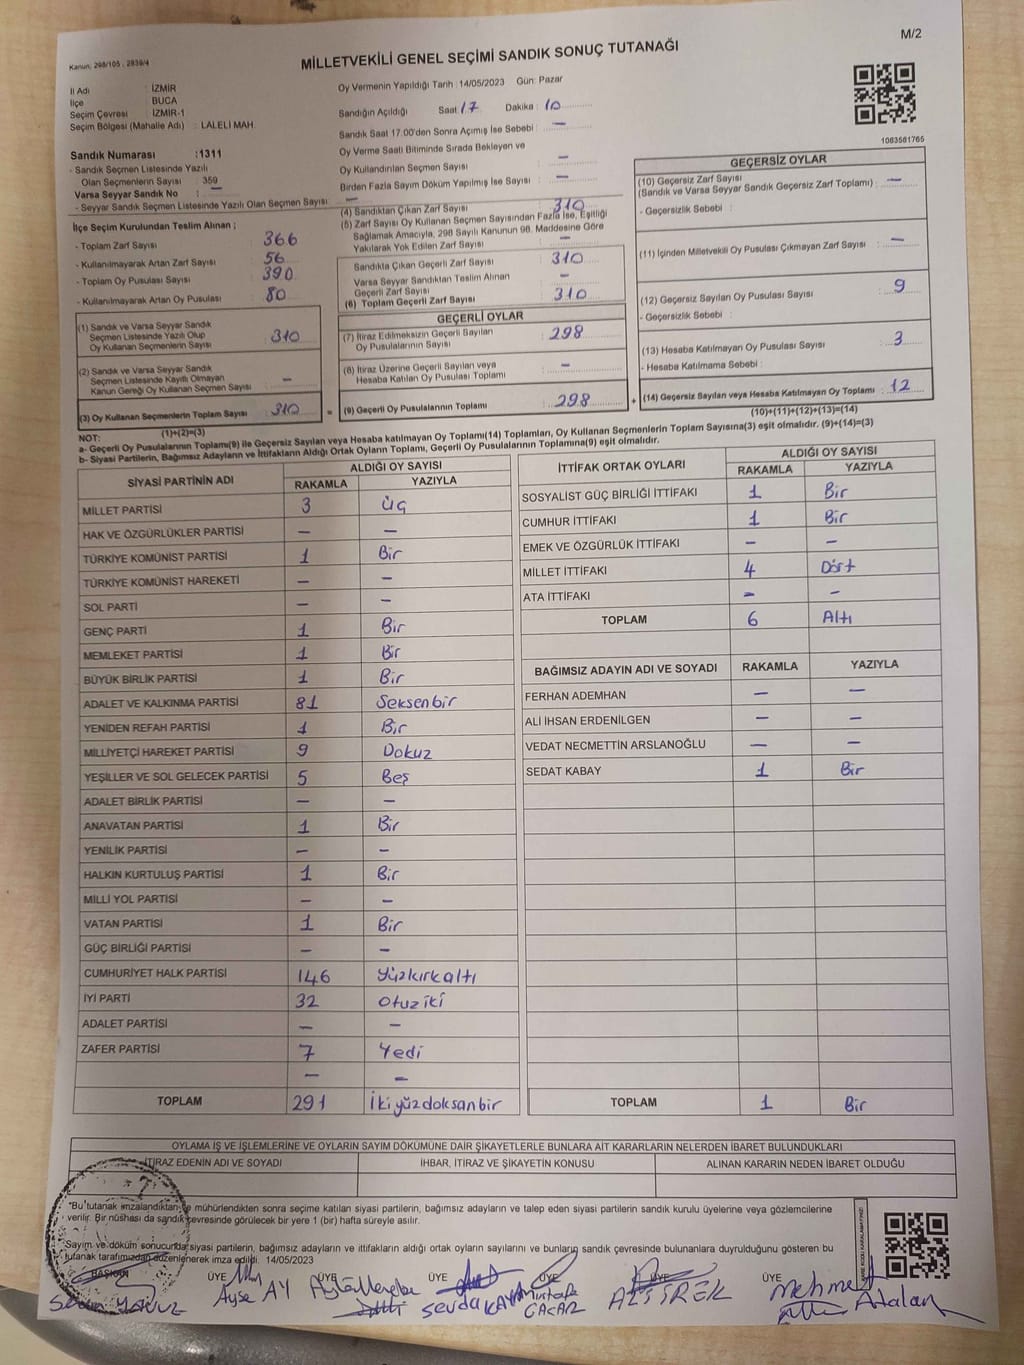 M/2
Kanun: 298/105 , 2839/4
MİLLETVEKİLİ GENEL SEÇİMİ SANDIK SONUÇ TUTANAĞI
İl Adı : İZMİR
İlçe : BUCA
Seçim Çevresi : İZMİR-1
Seçim Bölgesi (Mahalle Adı) : LALELİ MAH.
Oy Vermenin Yapıldığı Tarih : 14/05/2023 Gün: Pazar
Sandığın Açıldığı Saat 17 Dakika 10
Sandık Saat 17:00'den Sonra Açılmış İse Sebebi : —
Oy Verme Saati Bitiminde Sırada Bekleyen ve
Oy Kullandırılan Seçmen Sayısı : —
Birden Fazla Sayım Döküm Yapılmış İse Sayısı : —
1083581765
Sandık Numarası :1311
- Sandık Seçmen Listesinde Yazılı
Olan Seçmenlerin Sayısı : 359
Varsa Seyyar Sandık No : —
- Seyyar Sandık Seçmen Listesinde Yazılı Olan Seçmen Sayısı : —
İlçe Seçim Kurulundan Teslim Alınan ;
- Toplam Zarf Sayısı : 366
- Kullanılmayarak Artan Zarf Sayısı : 56
- Toplam Oy Pusulası Sayısı : 390
- Kullanılmayarak Artan Oy Pusulası : 80
(1) Sandık ve Varsa Seyyar Sandık
Seçmen Listesinde Yazılı Olup
Oy Kullanan Seçmenlerin Sayısı : 310
(2) Sandık ve Varsa Seyyar Sandık
Seçmen Listesinde Kayıtlı Olmayan
Kanun Gereği Oy Kullanan Seçmen Sayısı : —
(3) Oy Kullanan Seçmenlerin Toplam Sayısı : 310
(1)+(2)=(3)
(4) Sandıktan Çıkan Zarf Sayısı : 310
(5) Zarf Sayısı Oy Kullanan Seçmen Sayısından Fazla İse, Eşitliği
Sağlamak Amacıyla, 298 Sayılı Kanunun 98. Maddesine Göre
Yakılarak Yok Edilen Zarf Sayısı : —
Sandıkta Çıkan Geçerli Zarf Sayısı : 310
Varsa Seyyar Sandıktan Teslim Alınan
Geçerli Zarf Sayısı : —
(6) Toplam Geçerli Zarf Sayısı : 310
GEÇERLİ OYLAR
(7) İtiraz Edilmeksizin Geçerli Sayılan
Oy Pusulalarının Sayısı : 298
(8) İtiraz Üzerine Geçerli Sayılan veya
Hesaba Katılan Oy Pusulası Toplamı : —
= (9) Geçerli Oy Pusulalarının Toplamı : 298
GEÇERSİZ OYLAR
(10) Geçersiz Zarf Sayısı
(Sandık ve Varsa Seyyar Sandık Geçersiz Zarf Toplamı) : —
- Geçersizlik Sebebi :
(11) İçinden Milletvekili Oy Pusulası Çıkmayan Zarf Sayısı : —
(12) Geçersiz Sayılan Oy Pusulası Sayısı : 9
- Geçersizlik Sebebi :
(13) Hesaba Katılmayan Oy Pusulası Sayısı : 3
- Hesaba Katılmama Sebebi :
+ (14) Geçersiz Sayılan veya Hesaba Katılmayan Oy Toplamı : 12
(10)+(11)+(12)+(13)=(14)
NOT:
a- Geçerli Oy Pusulalarının Toplamı(9) ile Geçersiz Sayılan veya Hesaba katılmayan Oy Toplamı(14) Toplamları, Oy Kullanan Seçmenlerin Toplam Sayısına(3) eşit olmalıdır. (9)+(14)=(3)
b- Siyasi Partilerin, Bağımsız Adayların ve İttifakların Aldığı Ortak Oyların Toplamı, Geçerli Oy Pusulalarının Toplamına(9) eşit olmalıdır.
SİYASİ PARTİNİN ADI ALDIĞI OY SAYISI
RAKAMLA YAZIYLA
MİLLET PARTİSİ 3 Üç
HAK VE ÖZGÜRLÜKLER PARTİSİ — —
TÜRKİYE KOMÜNİST PARTİSİ 1 Bir
TÜRKİYE KOMÜNİST HAREKETİ — —
SOL PARTİ — —
GENÇ PARTİ 1 Bir
MEMLEKET PARTİSİ 1 Bir
BÜYÜK BİRLİK PARTİSİ 1 Bir
ADALET VE KALKINMA PARTİSİ 81 Seksenbir
YENİDEN REFAH PARTİSİ 1 Bir
MİLLİYETÇİ HAREKET PARTİSİ 9 Dokuz
YEŞİLLER VE SOL GELECEK PARTİSİ 5 Beş
ADALET BİRLİK PARTİSİ — —
ANAVATAN PARTİSİ 1 Bir
YENİLİK PARTİSİ — —
HALKIN KURTULUŞ PARTİSİ 1 Bir
MİLLİ YOL PARTİSİ — —
VATAN PARTİSİ 1 Bir
GÜÇ BİRLİĞİ PARTİSİ — —
CUMHURİYET HALK PARTİSİ 146 Yüzkırkaltı
İYİ PARTİ 32 Otuziki
ADALET PARTİSİ — —
ZAFER PARTİSİ 7 Yedi
— —
TOPLAM 291 İkiyüzdoksanbir
İTTİFAK ORTAK OYLARI ALDIĞI OY SAYISI
RAKAMLA YAZIYLA
SOSYALİST GÜÇ BİRLİĞİ İTTİFAKI 1 Bir
CUMHUR İTTİFAKI 1 Bir
EMEK VE ÖZGÜRLÜK İTTİFAKI — —
MİLLET İTTİFAKI 4 Dört
ATA İTTİFAKI — —
TOPLAM 6 Altı
BAĞIMSIZ ADAYIN ADI VE SOYADI RAKAMLA YAZIYLA
FERHAN ADEMHAN — —
ALİ İHSAN ERDENİLGEN — —
VEDAT NECMETTİN ARSLANOĞLU — —
SEDAT KABAY 1 Bir
TOPLAM 1 Bir
OYLAMA İŞ VE İŞLEMLERİNE VE OYLARIN SAYIM DÖKÜMÜNE DAİR ŞİKAYETLERLE BUNLARA AİT KARARLARIN NELERDEN İBARET BULUNDUKLARI
İTİRAZ EDENİN ADI VE SOYADI İHBAR, İTİRAZ VE ŞİKAYETİN KONUSU ALINAN KARARIN NEDEN İBARET OLDUĞU
"Bu tutanak imzalandıktan ve mühürlendikten sonra seçime katılan siyasi partilerin, bağımsız adayların ve talep eden siyasi partilerin sandık kurulu üyelerine veya gözlemcilerine
verilir. Bir nüshası da sandık çevresinde görülecek bir yere 1 (bir) hafta süreyle asılır.
"Sayım ve döküm sonucunda siyasi partilerin, bağımsız adayların ve ittifakların aldığı ortak oyların sayılarını ve bunların sandık çevresinde bulunanlara duyrulduğunu gösteren bu
tutanak tarafımızdan düzenlenerek imza edildi. 14/05/2023
BAŞKAN ÜYE ÜYE ÜYE ÜYE ÜYE ÜYE
Ayşe AY
Sevda KAYA
Mustafa
Mehmet
Atalan